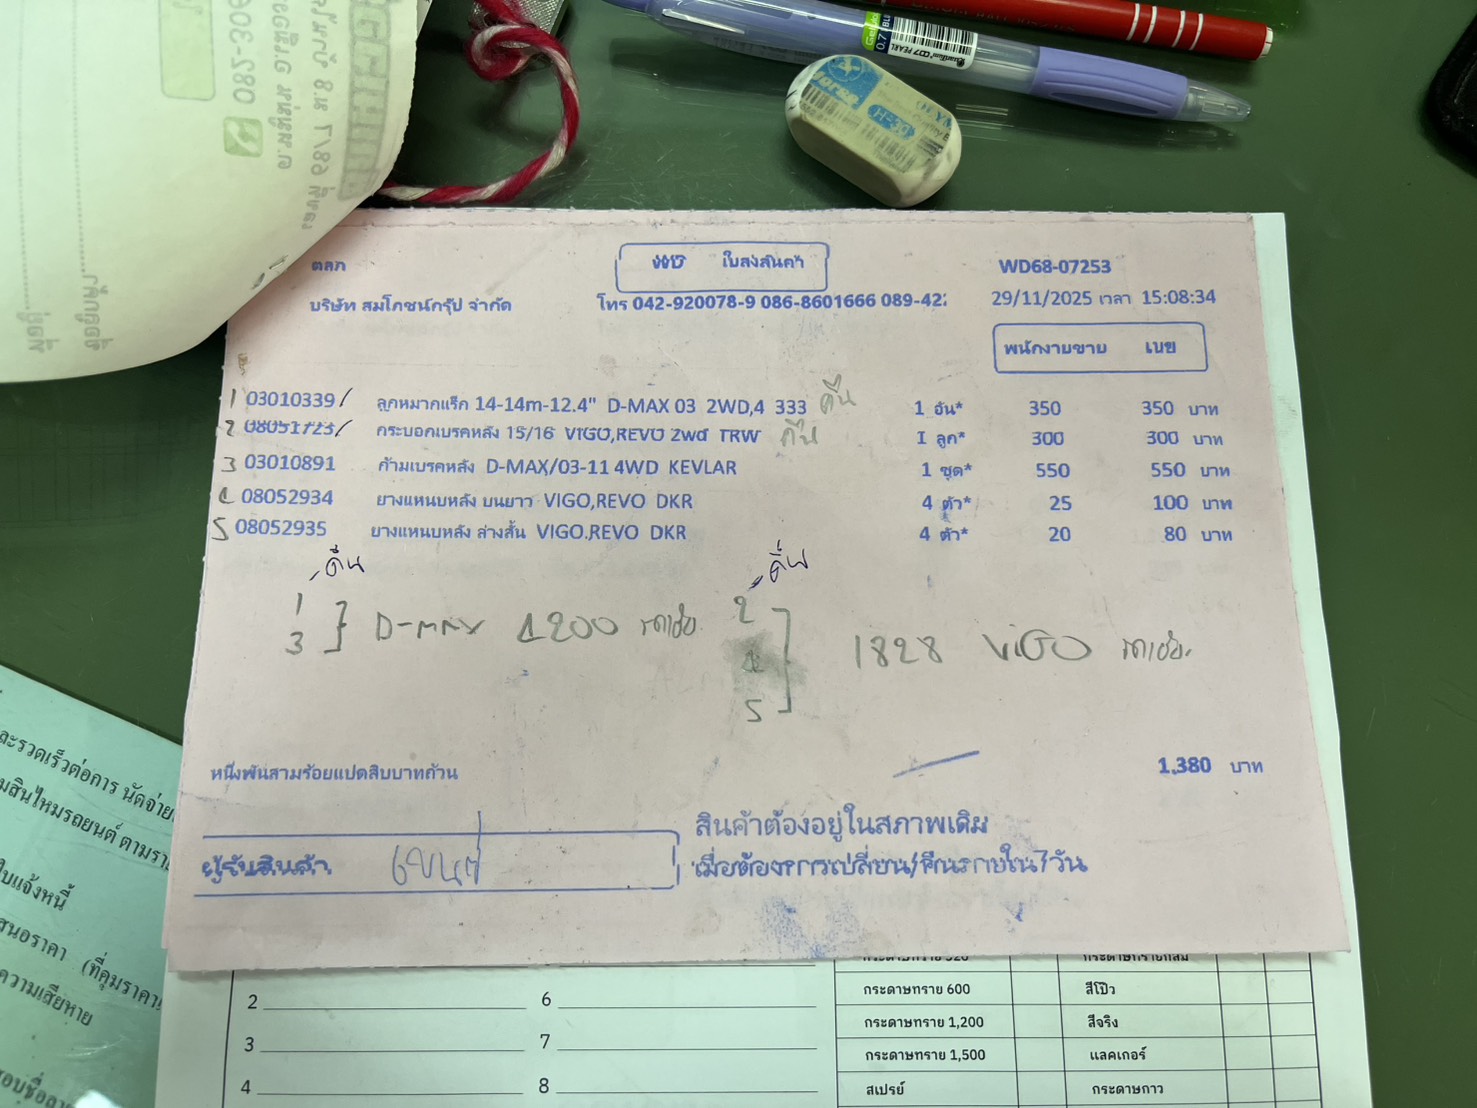 ตลภ
WD ใบส่งสินค้า
WD68-07253
บริษัท สมโภชน์กรุ๊ป จำกัด
โทร 042-920078-9 086-8601666 089-422
29/11/2025 เวลา 15:08:34
พนักงายขาย เนย
1 03010339/ ลูกหมากแร็ก 14-14m-12.4" D-MAX 03 2WD,4 333 คืน 1 อัน* 350 350 บาท
2 08051723/ กระบอกเบรคหลัง 15/16 VIGO,REVO 2wd TRW คืน 1 ลูก* 300 300 บาท
3 03010891 ก้ามเบรคหลัง D-MAX/03-11 4WD KEVLAR 1 ชุด* 550 550 บาท
4 08052934 ยางแหนบหลัง บนยาว VIGO,REVO DKR 4 ตัว* 25 100 บาท
5 08052935 ยางแหนบหลัง ล่างสั้น VIGO.REVO DKR 4 ตัว* 20 80 บาท
คืน
1
3 } D-MAX 4200
คืน
2
4
5
1828 VIGO
หนึ่งพันสามร้อยแปดสิบบาทถ้วน
1,380 บาท
ผู้รับสินค้า
สินค้าต้องอยู่ในสภาพเดิม
เมื่อต้องการเปลี่ยน/คืนภายใน7วัน
2
3
4
6
7
8
กระดาษทราย 320
กระดาษทราย 600
กระดาษทราย 1,200
กระดาษทราย 1,500
สเปรย์
กระดาษทรายกลม
สีโป๊ว
สีจริง
แลคเกอร์
กระดาษกาว
ละรวดเร็วต่อการ นัดจ่าย
มสินไหมรถยนต์ ตามรา
ใบแจ้งหนี้
สนอราคา (ที่คุมราคา
ความเสียหาย
H-30
0.7
PEARL